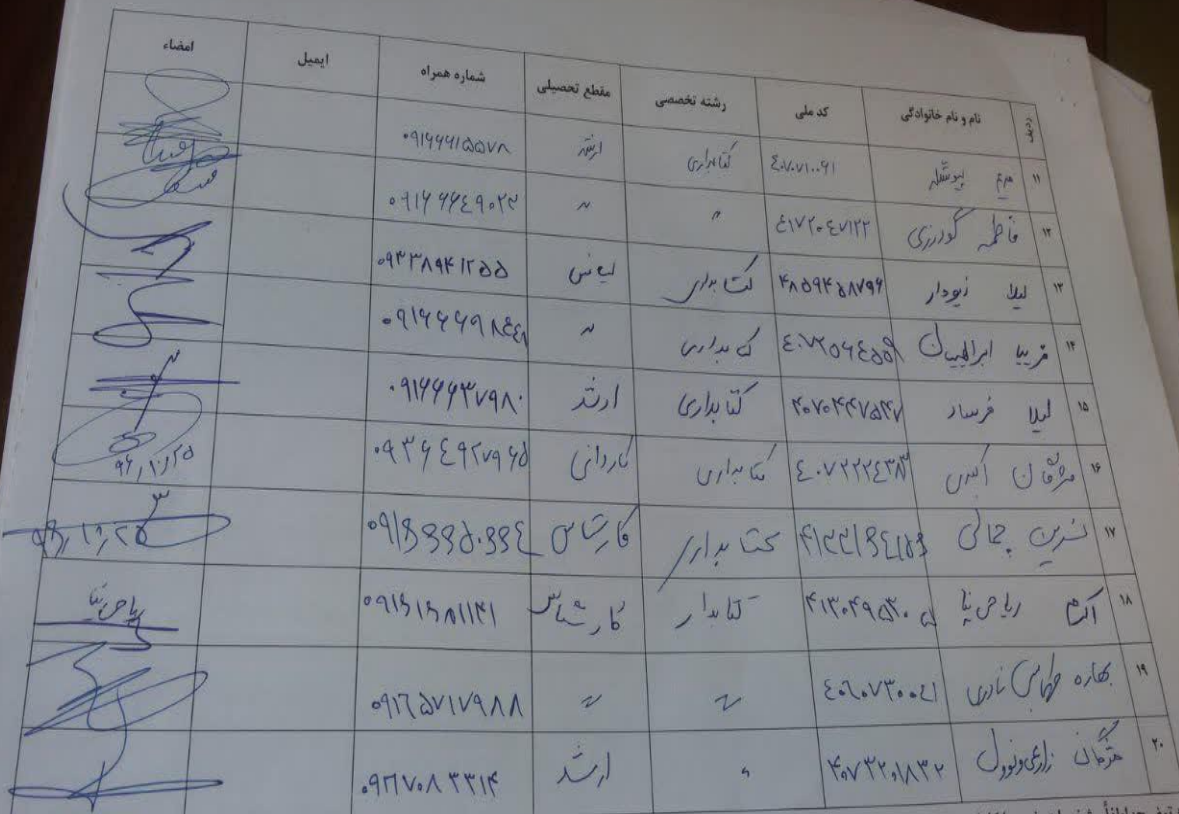 ردیف نام و نام خانوادگی کد ملی رشته تخصصی مقطع تحصیلی شماره همراه ایمیل امضاء
۱۱ مریم کتابداری ارشد ۰۹۱۶۶۶۱۵۵۷۸
۱۲ فاطمه گودرزی ۴۱۷۲۰۴۷۱۲۲ 〃 〃 ۰۹۱۶۶۶۴۹۰۲۳
۱۳ لیلا زیودار ۴۸۵۹۴۵۸۷۹۶ کتابداری لیسانس ۰۹۳۳۸۹۴۱۲۵۵
۱۴ فریبا کتابداری 〃
۱۵ لیلا فرساد ۴۰۷۰۴۴۷۵۴۷ کتابداری ارشد ۰۹۱۶۶۶۳۷۹۸۰
۱۶ مژگان اکبری ۴۰۷۲۲۲۴۳۸۳ کتابداری کاردانی ۰۹۳۶۴۹۲۷۹۶۵
۱۷ نسرین جمالی کتابداری کارشناس ۰۹۱۶۶۶۵۰۶۶۴
۱۸ ریاحی نیا کتابدار کارشناس ۰۹۱۶۱۶۸۱۱۴۱ ریاحی نیا
۱۹ بهاره طهماسبی نادری ۴۰۶۰۷۳۰۰۴۱ 〃 〃 ۰۹۱۶۵۷۱۷۹۸۸
۲۰ مژگان ۴۰۷۳۲۰۱۸۳۲ 〃 ارشد ۰۹۱۶۷۰۸۳۳۱۴